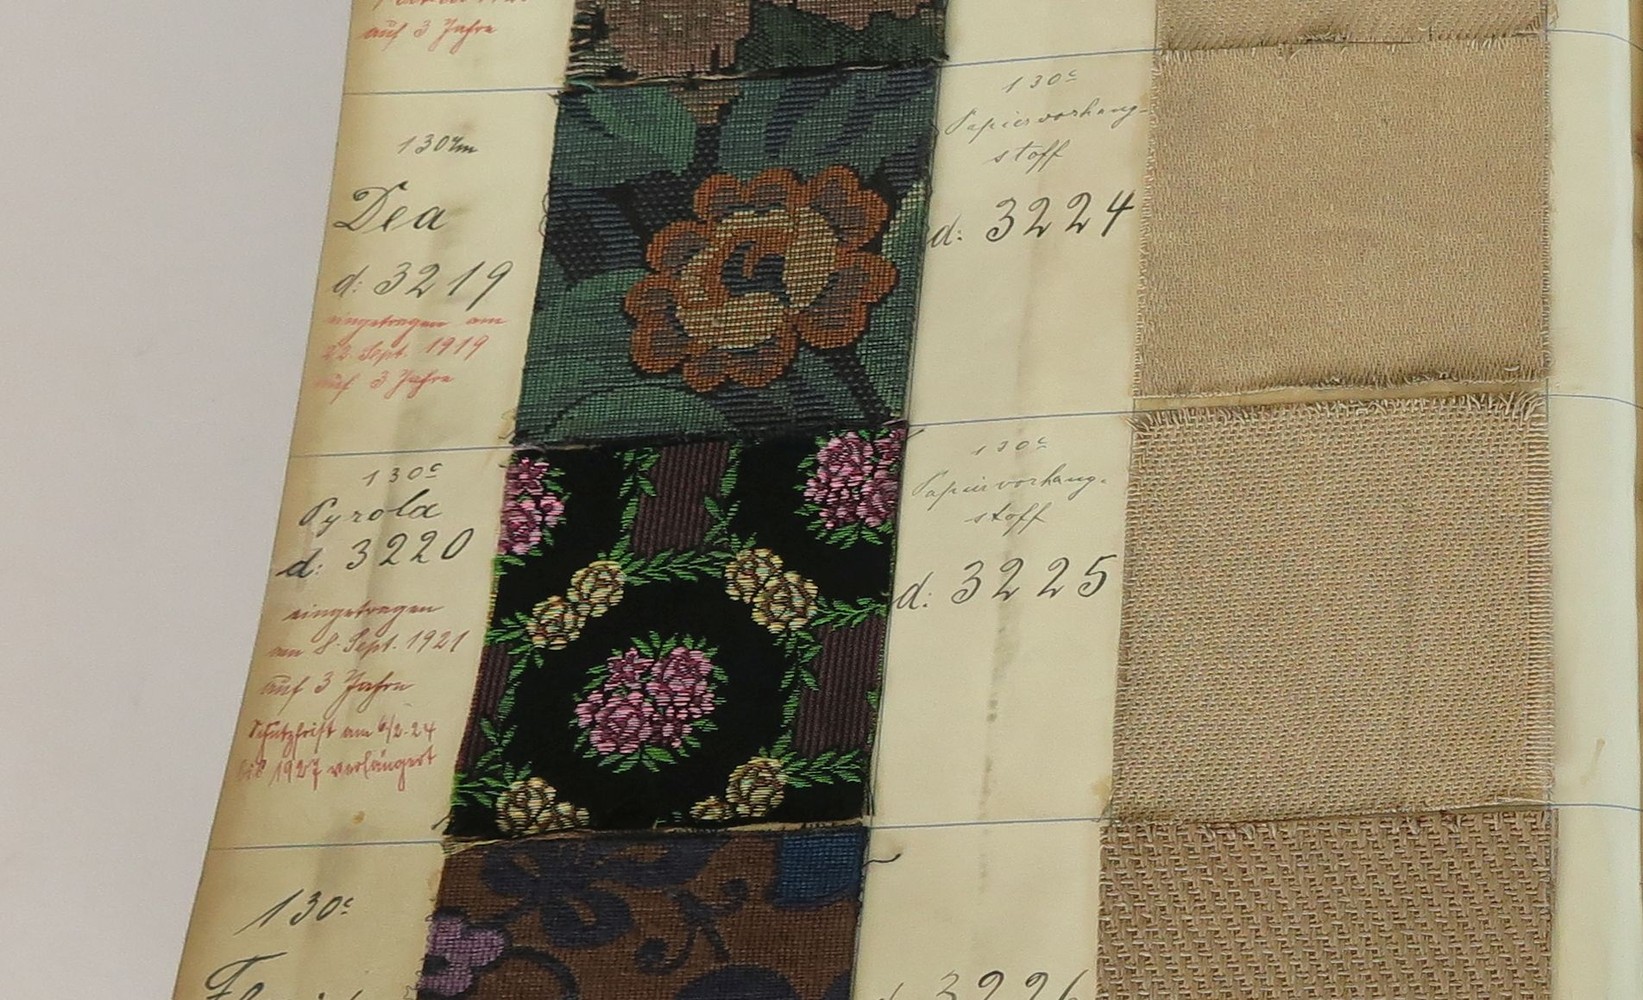 auf 3 Jahre
130 cm
Dea
d: 3219
eingetragen am
22. Sept. 1919
auf 3 Jahre
130 c
Pyrola
d: 3220
eingetragen
am 8. Sept. 1921
auf 3 Jahre
Schutzfrist am 6/2.24
bis 1927 verlängert
130 c
130 c
Papiervorhang-
stoff
d: 3224
130 c
Papiervorhang-
stoff
d: 3225
d: 3226